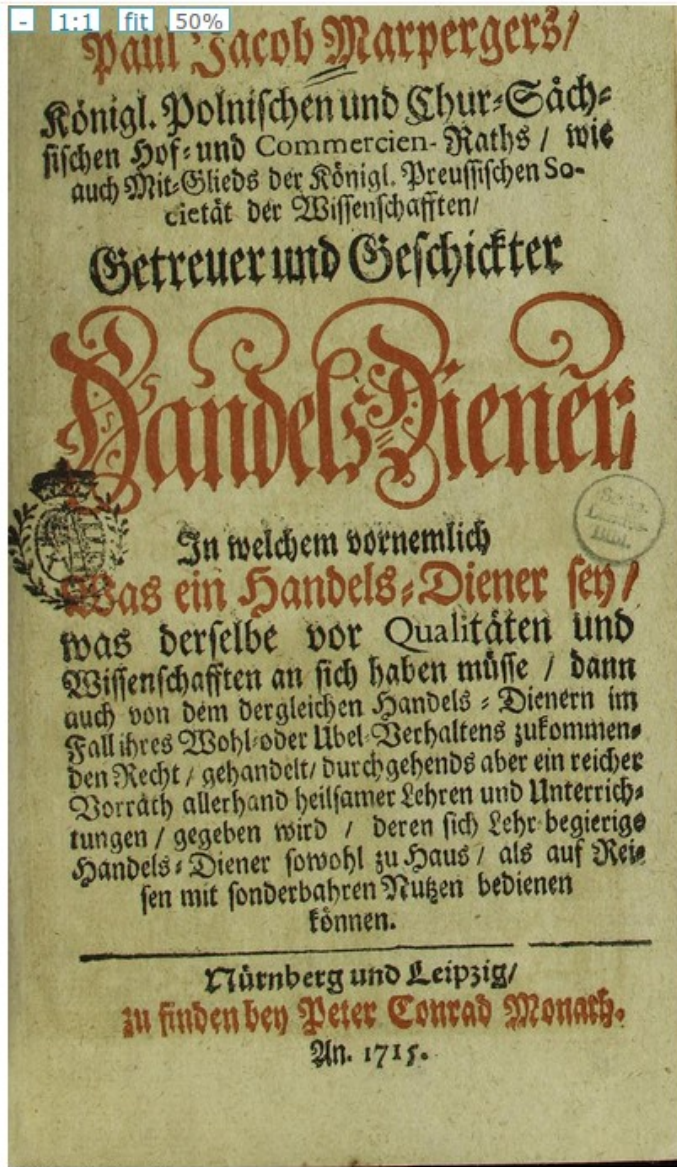 - 1:1 fit 50%
Paul Jacob Marpergers/
Königl. Polnischen und Chur-Säch-
sischen Hof- und Commercien- Raths / wie
auch Mit-Glieds der Königl. Preussischen So-
cietät der Wissenschafften/
Getreuer und Geschickter
Handels-Diener/
In welchem vornemlich
Was ein Handels-Diener sey/
was derselbe vor Qualitäten und
Wissenschafften an sich haben müsse / dann
auch von dem dergleichen Handels-Dienern im
Fall ihres Wohl-oder Ubel-Verhaltens zukommen-
den Recht / gehandelt/ durchgehends aber ein reicher
Vorrath allerhand heilsamer Lehren und Unterrich-
tungen / gegeben wird / deren sich Lehr-begierige
Handels-Diener sowohl zu Haus / als auf Rei-
sen mit sonderbahren Nutzen bedienen
können.
Nürnberg und Leipzig/
zu finden bey Peter Conrad Monath.
An. 1715.